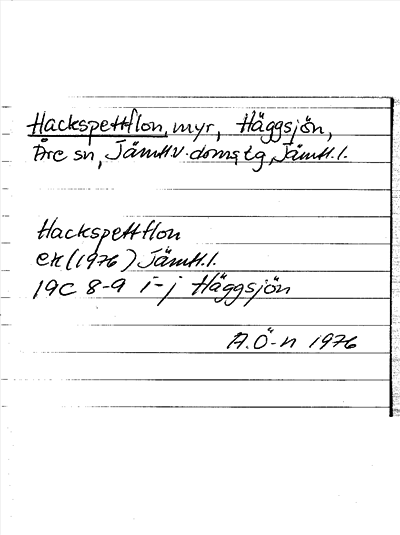 Hackspettflon, myr, Häggsjön,
Åre sn, Jämtl.v. doms, tg, Jämtl.l.
Hackspettflon
ek (1976) Jämtl.l.
19C 8-9 i-j Häggsjön
A.Ö-n 1976